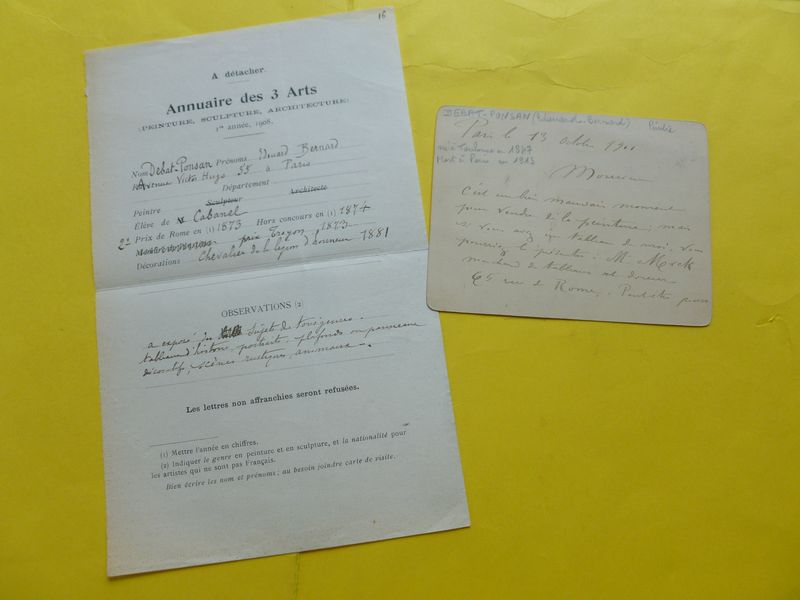 16
A détacher.
Annuaire des 3 Arts
(PEINTURE, SCULPTURE, ARCHITECTURE)
1re année, 1908.
Nom Debat-Ponsan Prénoms Edouard Bernard
Avenue Victor Hugo 55 à Paris
Département
Peintre Sculpteur Architecte
Élève de Cabanel
2e Prix de Rome en (1) 1873 Hors concours en (1) 1874
prix Troyon 1873
Décorations Chevalier de la légion d'honneur 1881
OBSERVATIONS (2)
a exposé des sujets de tous genres
tableaux d'histoire, portraits, plafonds ou panneaux
décoratifs, scènes rustiques, animaux.
Les lettres non affranchies seront refusées.
(1) Mettre l'année en chiffres.
(2) Indiquer le genre en peinture et en sculpture, et la nationalité pour
les artistes qui ne sont pas Français.
Bien écrire les nom et prénoms; au besoin joindre carte de visite.
DEBAT-PONSAN (Edouard-Bernard) Peintre
Paris le 13 Octobre
né à Toulouse en 1847
Mort à Paris en 1913
Monsieur
C'est un bien mauvais moment
pour vendre de la peinture; mais
si vous avez un tableau de moi, vous
pourriez le présenter à M.
marchand de tableaux et doreur
65 rue de Rome. Peut-être pourra